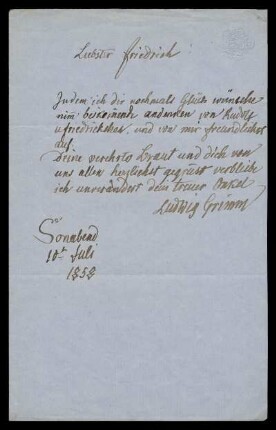 Liebster Friedrich
Indem ich dir nochmals Glück wünsche
nim andenken von Rudolf
und von mir freundlichst
auf.
Deine verehrte Braut und dich von
uns allen herzlichst gegrüst verbleibe
ich unverändert dein treuer Onkel
Ludwig Grimm
Sonnbend
10t Juli
1858